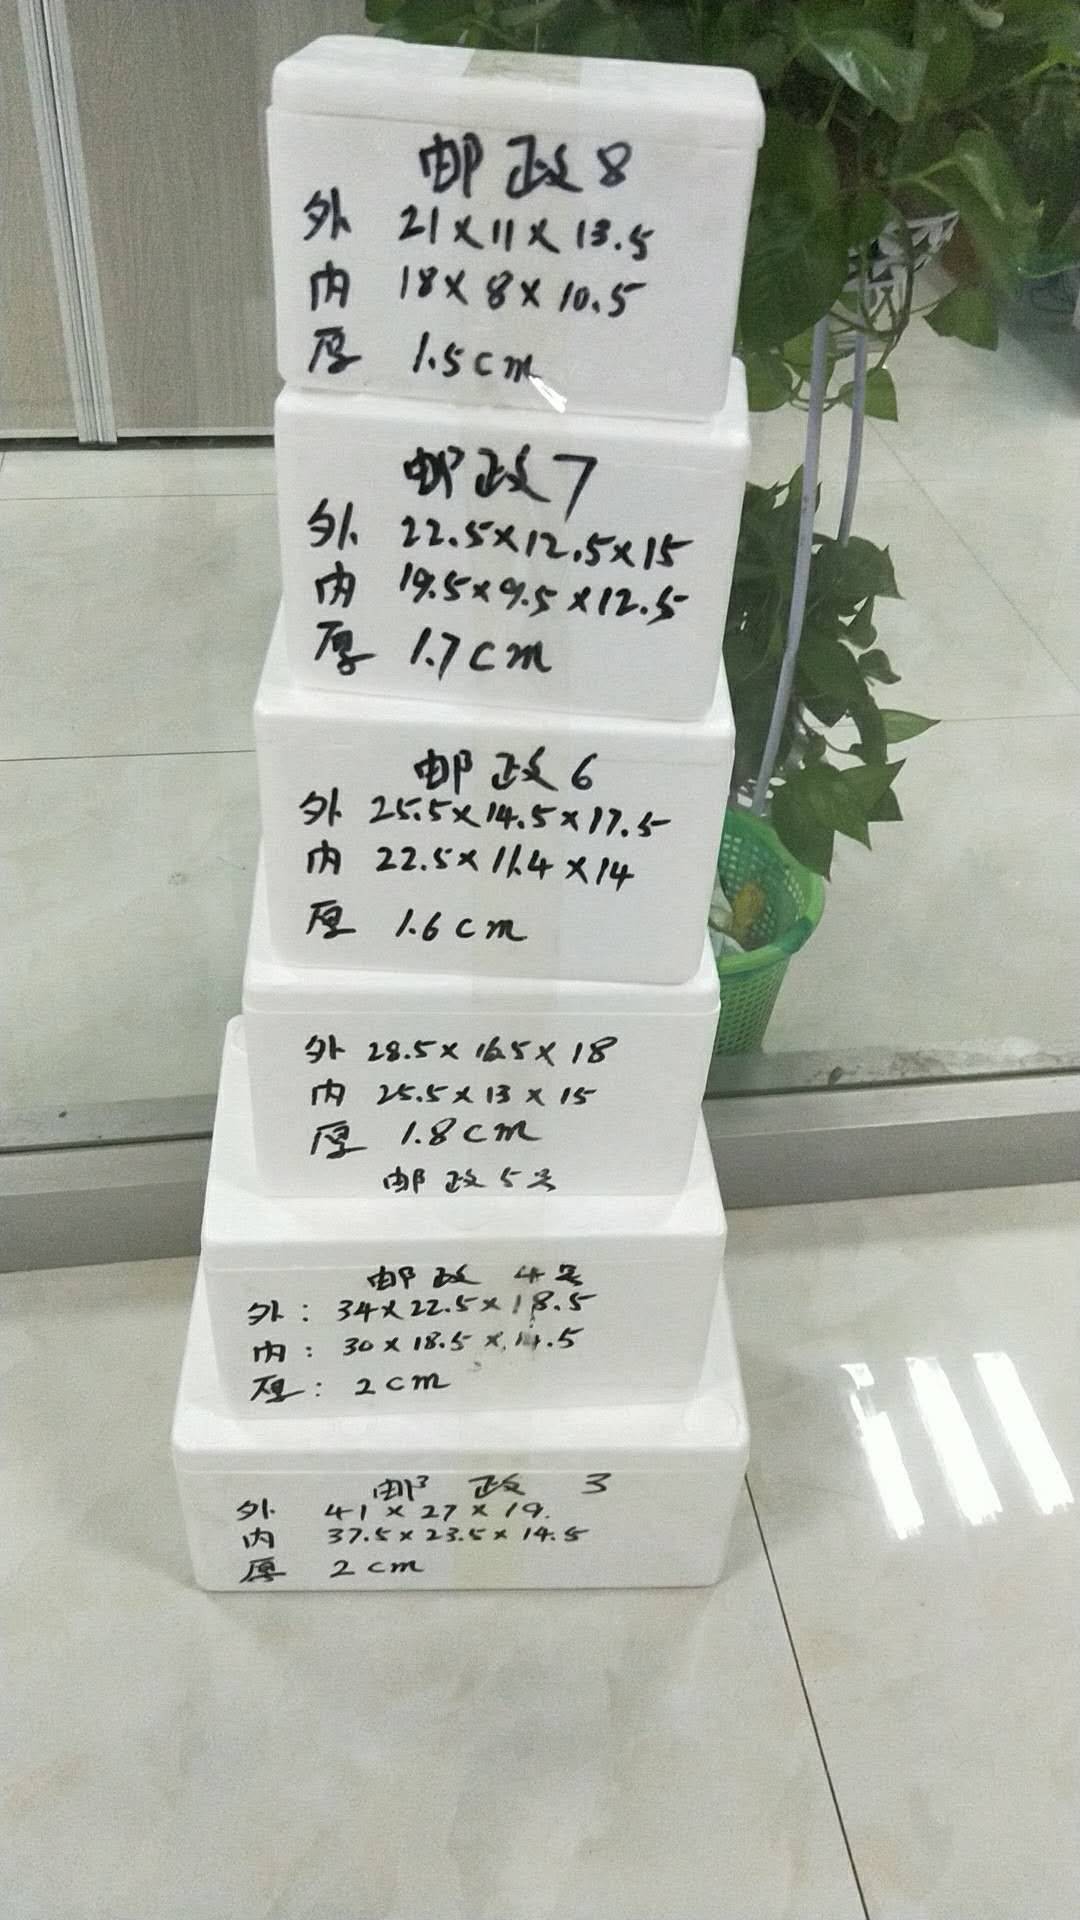 邮政8
外 21×11×13.5
内 18×8×10.5
厚 1.5cm
邮政7
外 22.5×12.5×15
内 19.5×9.5×12.5
厚 1.7cm
邮政6
外 25.5×14.5×17.5
内 22.5×11.4×14
厚 1.6cm
外 28.5×16.5×18
内 25.5×13×15
厚 1.8cm
邮政5号
邮政 4号
外: 34×22.5×18.5
内: 30×18.5×14.5
厚: 2cm
邮政 3
外 41×27×19.
内 37.5×23.5×14.5
厚 2cm